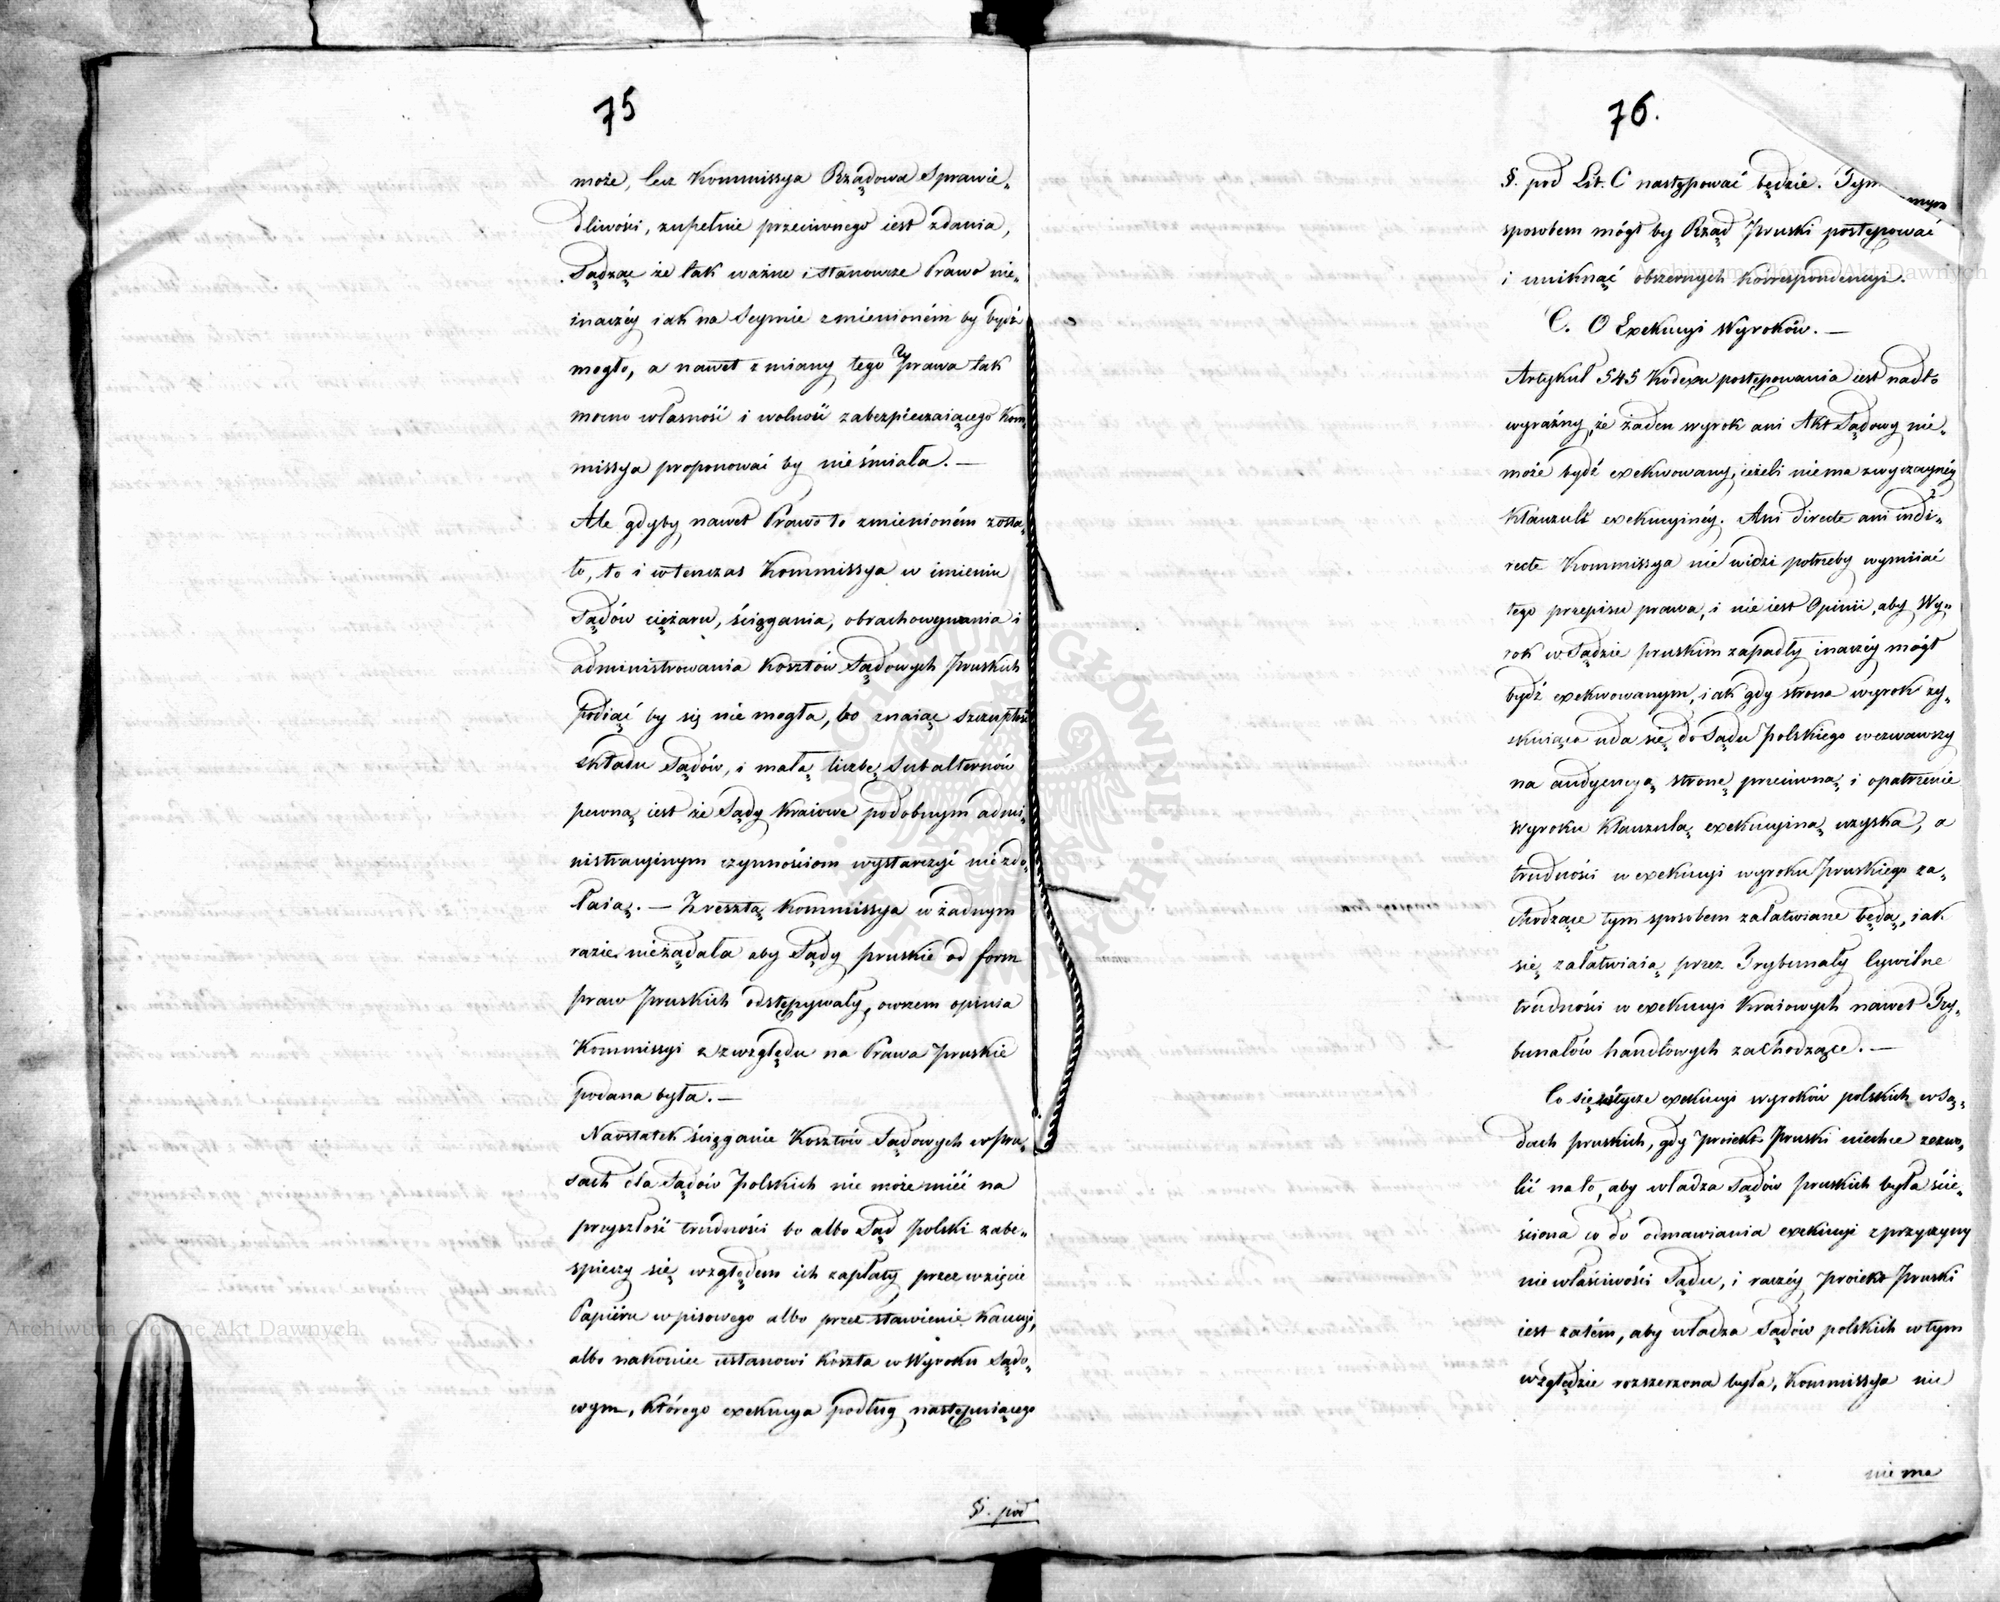 75
może, lecz Kommissya Rządowa Sprawie-
dliwości, zupełnie przeciwnego iest zdania,
Sądząc że tak ważne i stanowcze Prawo nie-
inaczéy iak na Seymie zmienioném by bydź
mogło, a nawet zmiany tego Prawa tak
mocno własność i wolność zabezpieczaiącego Kom-
missya proponować by nieśmiała. —
Ale gdyby nawet Prawo to zmienioném zosta-
ło, to i wtenczas Kommissya w imieniu
Sądów ciężaru, ściągania, obrachowywania i
administrowania Kosztów Sądowych Pruskich
podiąć by się nie mogła, bo znaiąc szczupłość
składu Sądów, i małą liczbę Subalternów
pewną iest że Sądy Kraiowe podobnym admi-
nistracyinym czynnościom wystarczyć nie zdo-
łaią. — Zresztą Kommissya w żadnym
razie nieżądała aby Sądy pruskie od form
praw Pruskich odstępywały, owszem opinia
Kommissyi z względu na Prawa Pruskie
podana była. —
Naostatek ściąganie Kosztów Sądowych w Pru-
sach dla Sądów Polskich nie może mieć na
przyszłość trudności bo albo Sąd Polski zabe-
spieczy się względem ich zapłaty przez wzięcie
Papiéru wpisowego albo przez stawienie Kaucyi,
albo nakoniec ustanowi Koszta w Wyroku Sądo-
wym, którego exekucya podług następuiącego
§. pod
76.
§. pod Lit. C następować będzie. Tym
sposobem mógł by Rząd Pruski postępować
i uniknąć obszernych Korrespondencyi.
C. O Exekucyi Wyroków. —
Artykuł 545 Kodexu postępowania iest nadto
wyraźny, że żaden wyrok ani Akt Sądowy nie-
może bydź exekwowany, ieżeli niema zwyczayney
Klauzuli exekucyinéy. Ani directe ani indi-
recte Kommissya nie widzi potrzeby wymiiać
tego przepisu prawa, i nie iest Opinii, aby Wy-
rok w Sądzie pruskim zapadły inaczéy mógł
bydź exekwowanym, iak gdy strona wyrok zy-
skuiąca uda się do Sądu Polskiego wezwawszy
na audyencyą stronę przeciwną i opatrzenie
Wyroku Klauzulą exekucyiną uzyska, a
trudności w exekucyi wyroku Pruskiego za-
chodzące tym sposobem załatwiane będą, iak
się załatwiaią przez Trybunały Cywilne
trudności w exekucyi Kraiowych nawet Try-
bunałów handlowych zachodzące. —
Co się tycze exekucyi wyroków polskich w Są-
dach pruskich, gdy Proiekt Pruski niechce zezwo-
lić na to, aby władza Sądów pruskich była ście-
śniona co do odmawiania exekucyi z przyczyny
niewłaściwości Sądu, i raczéy Proiekt Pruski
iest zatém, aby władza Sądów polskich w tym
względzie rozszerzona była, Kommissya nie
niema
Archiwum Główne Akt Dawnych
Archiwum Główne Akt Dawnych